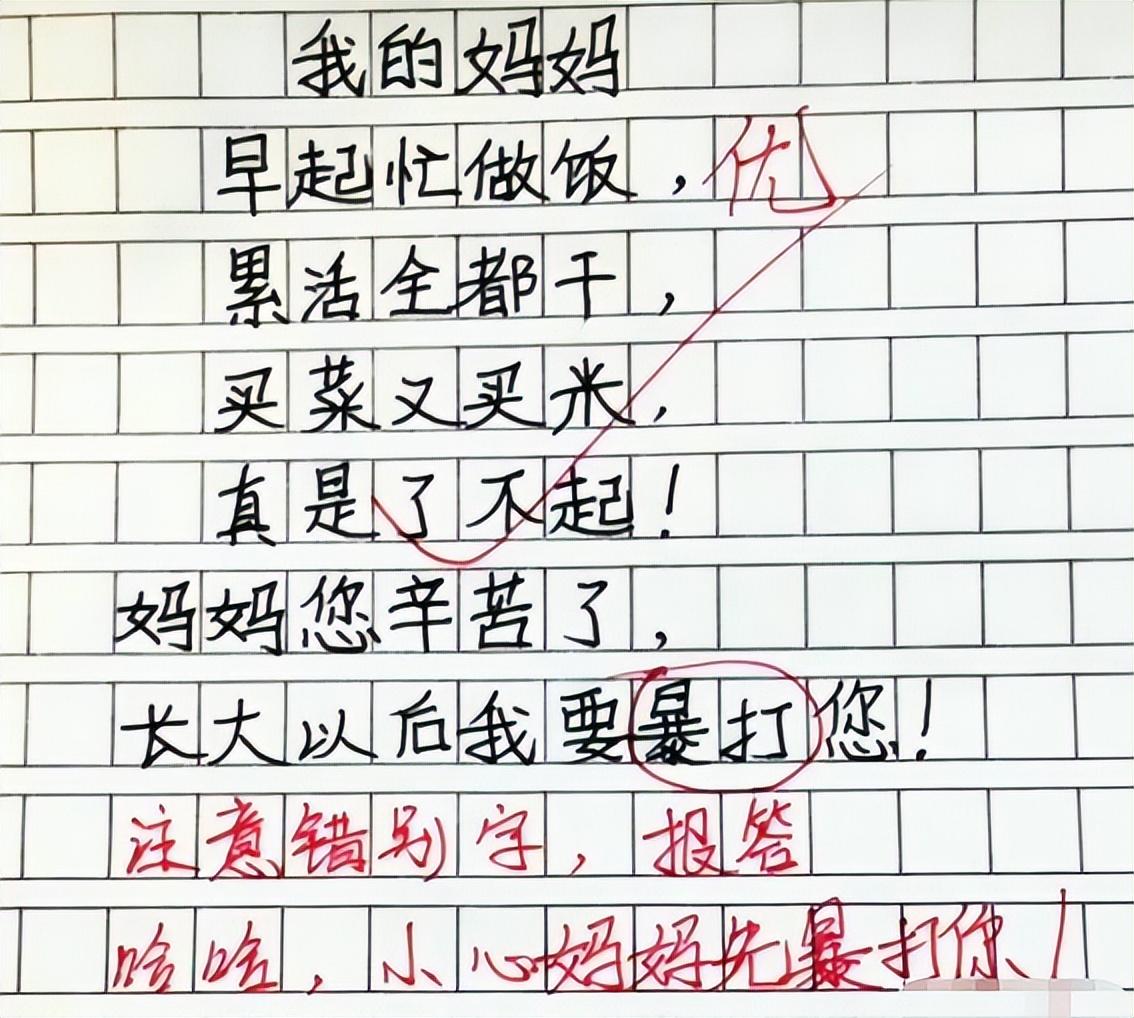 我的妈妈
早起忙做饭，优
累活全都干，
买菜又买米，
真是了不起！
妈妈您辛苦了，
长大以后我要暴打您！
注意错别字，报答
哈哈，小心妈妈先暴打你！